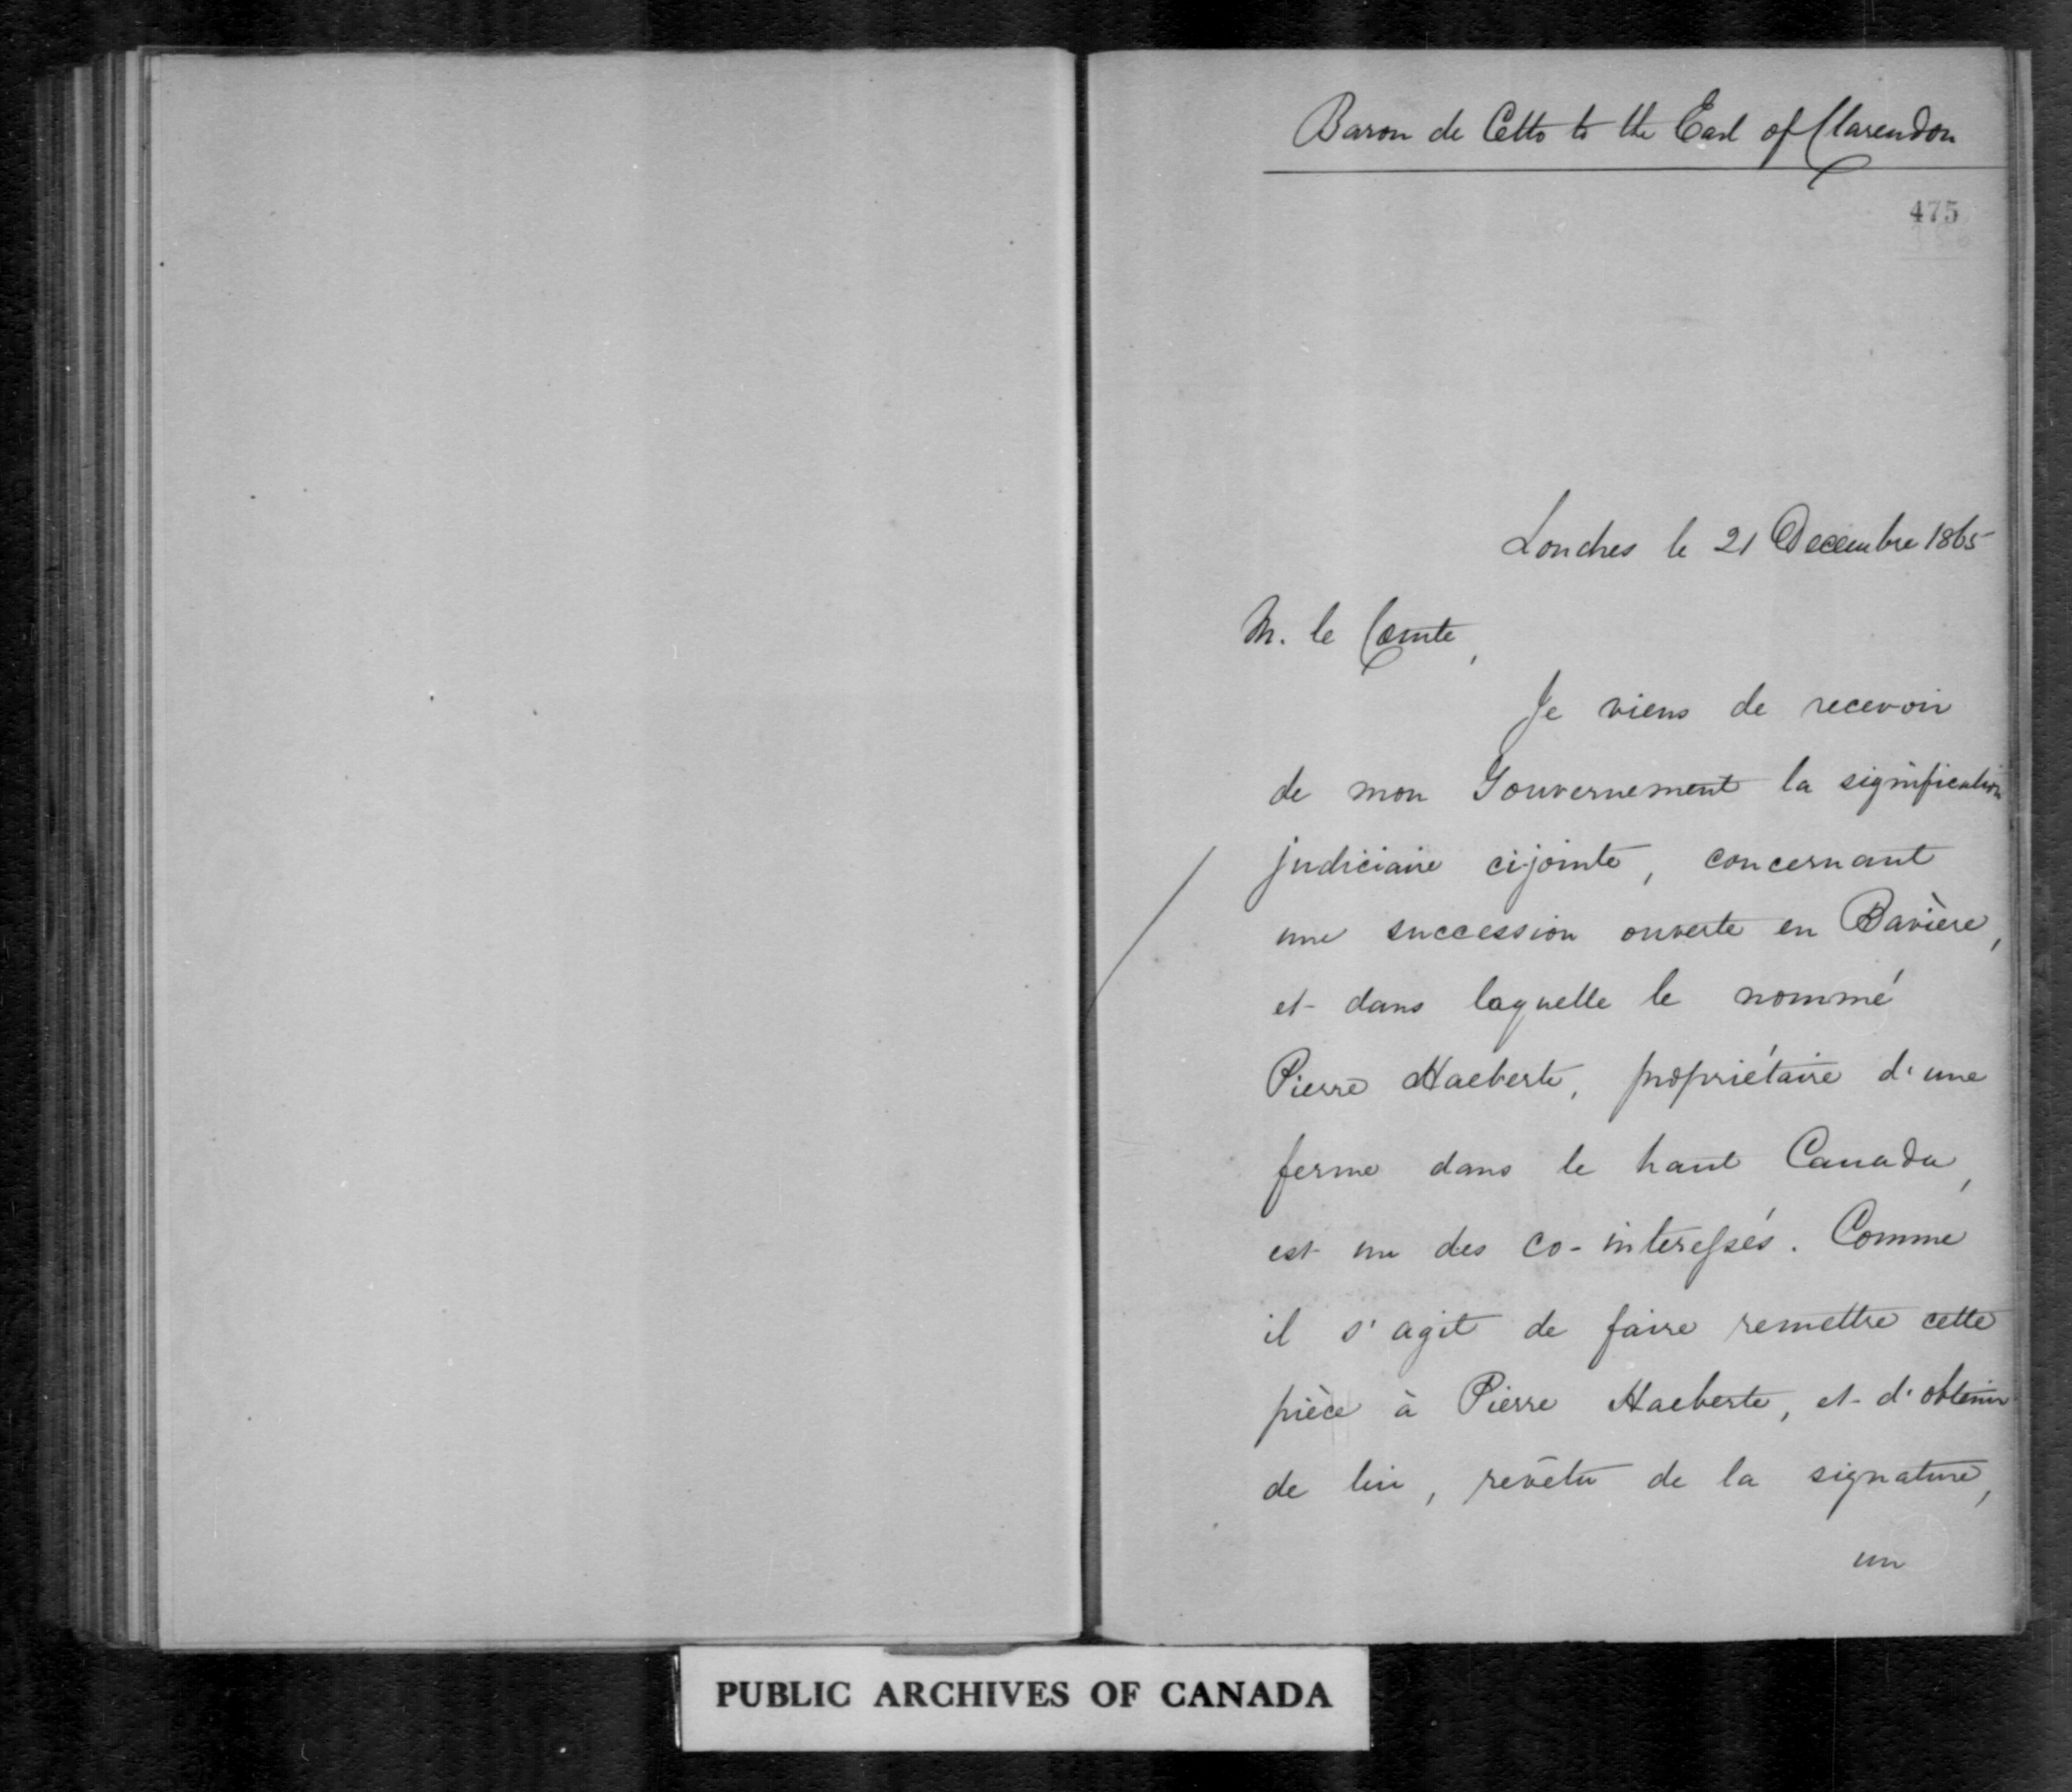 Baron de Cetto to the Earl of Clarendon
475
Londres le 21 Decembre 1865
M. le Comte,
Je viens de recevoir
de mon Gouvernement la signification
judiciaire cijointe, concernant
une succession ouverte en Bavière,
et dans laquelle le nommé
Pierre Haeberte, propriétaire d'une
ferme dans le haut Canada,
est un des co-interessés. Comme
il s'agit de faire remettre cette
pièce à Pierre Haeberte, et d'obtenir
de lui, revêtu de la signature,
un
PUBLIC ARCHIVES OF CANADA